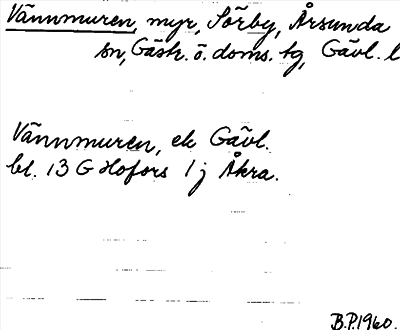 Vännmuren, myr, Sörby, Årsunda
sn, Gästr. ö. doms. tg, Gävl. l
Vännmuren, ek Gävl.
bl. 13 G Hofors 1 j Åkra.
B.P. 1960.